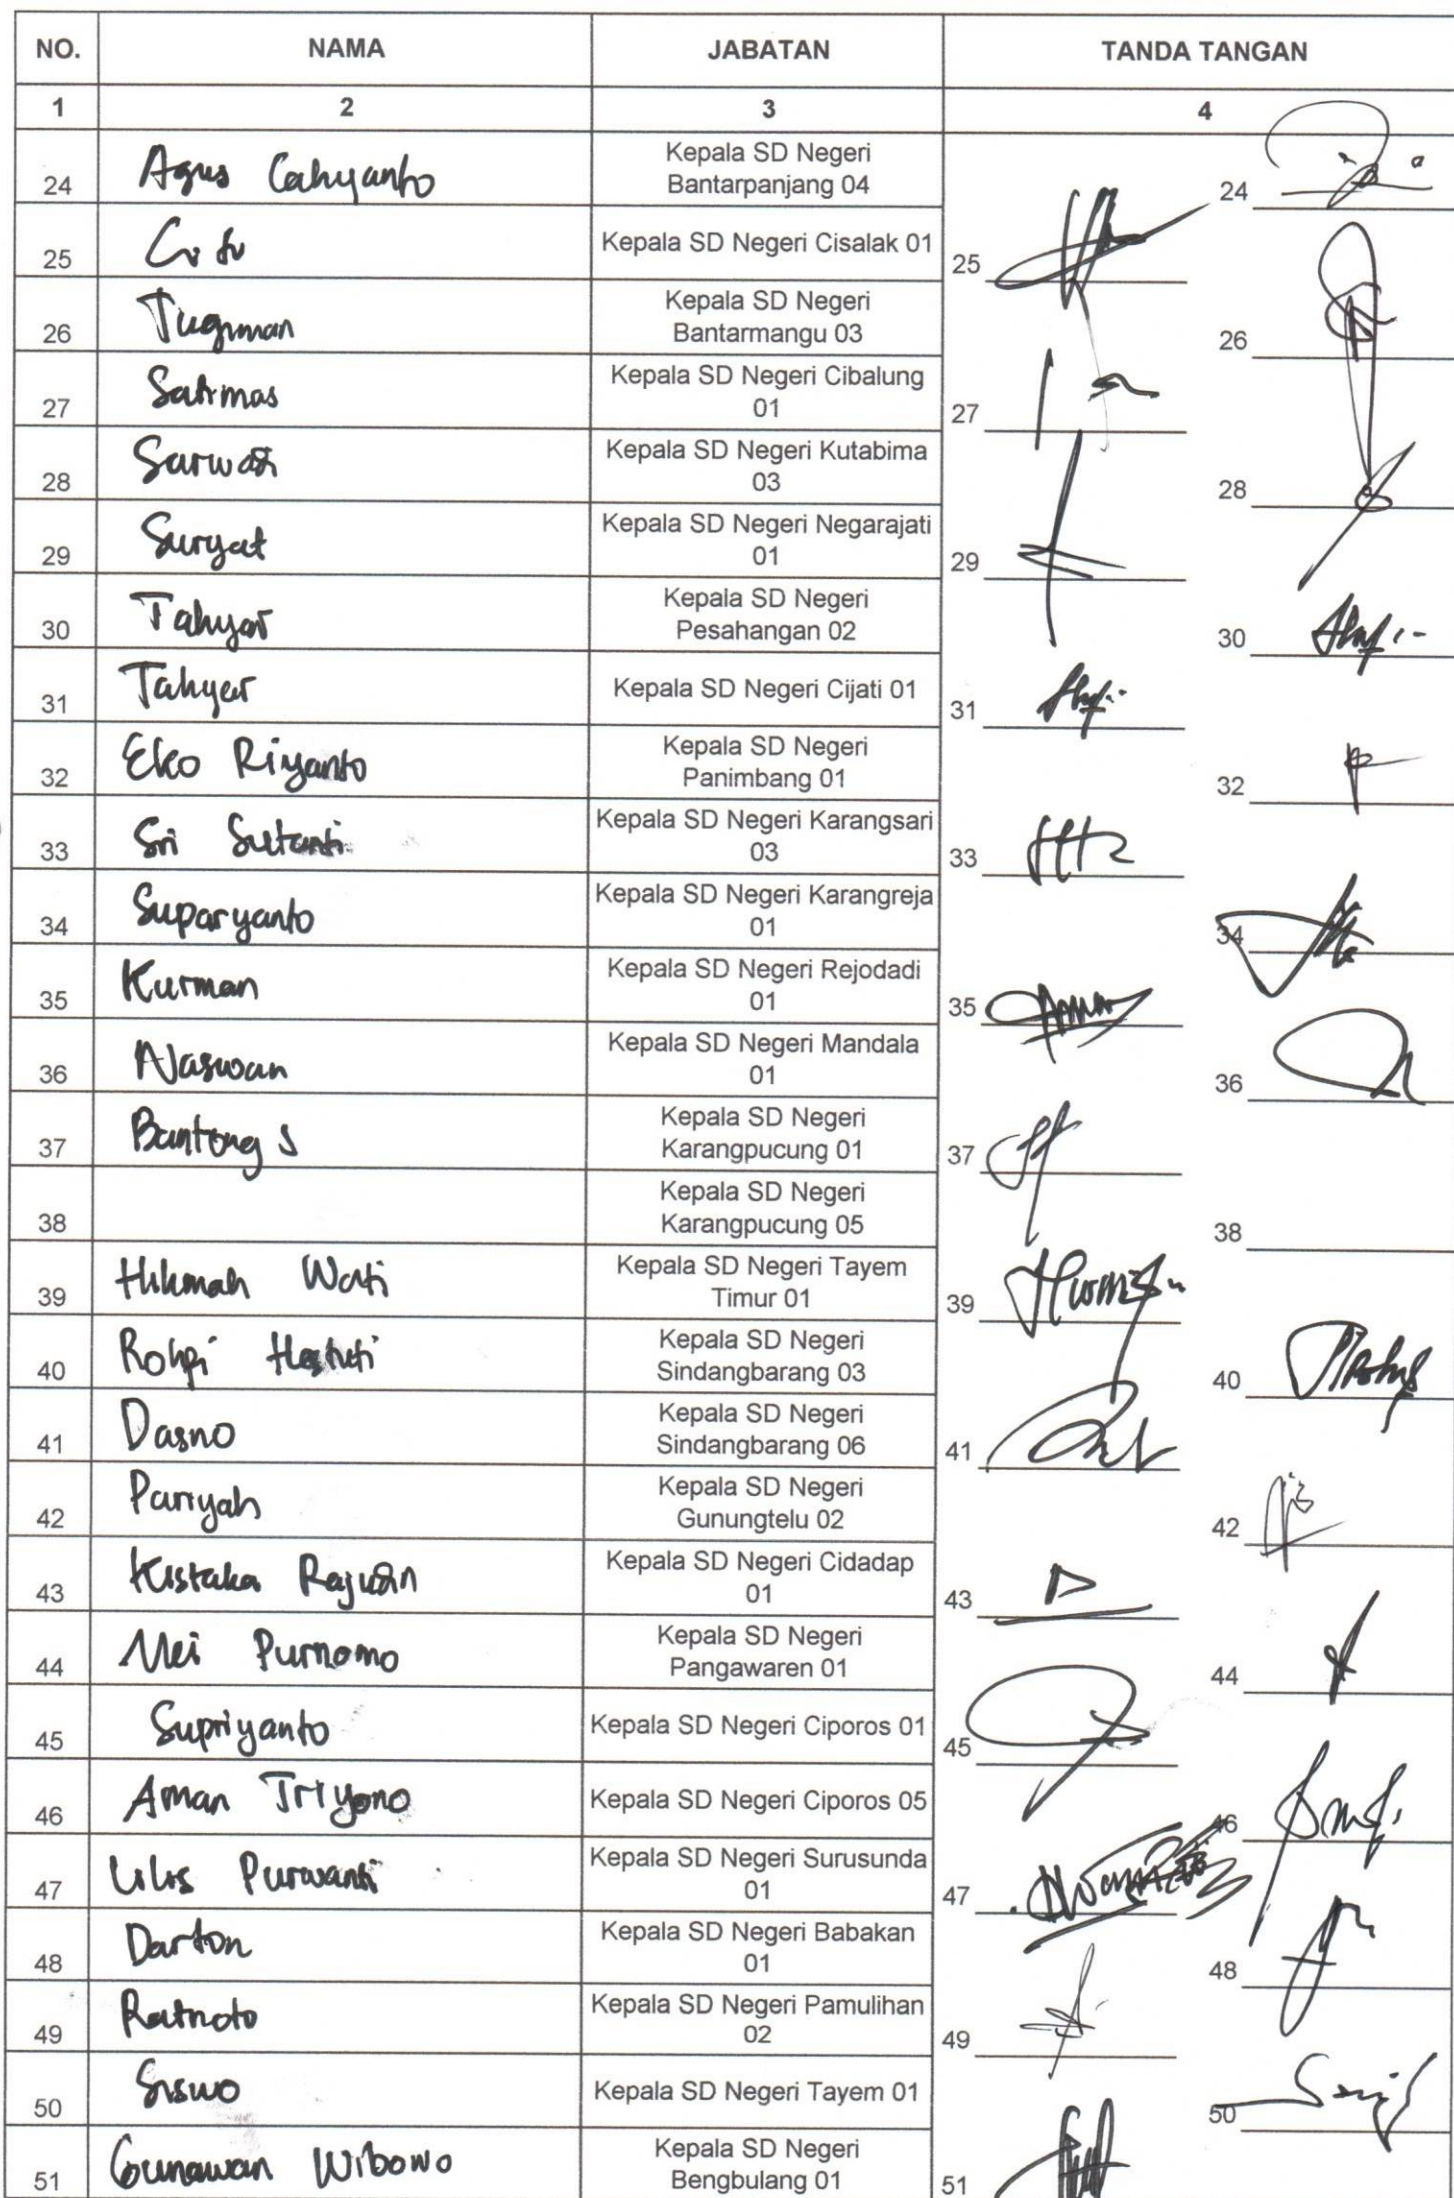 NO. NAMA JABATAN TANDA TANGAN
1 2 3 4
24 Agus Cahyanto Kepala SD Negeri Bantarpanjang 04 24
25 Kepala SD Negeri Cisalak 01 25
26 Tugiman Kepala SD Negeri Bantarmangu 03 26
27 Satimas Kepala SD Negeri Cibalung 01 27
28 Kepala SD Negeri Kutabima 03 28
29 Suryat Kepala SD Negeri Negarajati 01 29
30 Tahyar Kepala SD Negeri Pesahangan 02 30
31 Tahyar Kepala SD Negeri Cijati 01 31
32 Eko Riyanto Kepala SD Negeri Panimbang 01 32
33 Sri Sutanti Kepala SD Negeri Karangsari 03 33
34 Suparyanto Kepala SD Negeri Karangreja 01 34
35 Kurman Kepala SD Negeri Rejodadi 01 35
36 Naswan Kepala SD Negeri Mandala 01 36
37 Banteng S Kepala SD Negeri Karangpucung 01 37
38 Kepala SD Negeri Karangpucung 05 38
39 Hikmah Wati Kepala SD Negeri Tayem Timur 01 39
40 Hastuti Kepala SD Negeri Sindangbarang 03 40
41 Dasno Kepala SD Negeri Sindangbarang 06 41
42 Pariyah Kepala SD Negeri Gunungtelu 02 42
43 Kistaka Kepala SD Negeri Cidadap 01 43
44 Mei Purnomo Kepala SD Negeri Pangawaren 01 44
45 Supriyanto Kepala SD Negeri Ciporos 01 45
46 Aman Triyono Kepala SD Negeri Ciporos 05 46
47 Lilis Purwanti Kepala SD Negeri Surusunda 01 47
48 Darton Kepala SD Negeri Babakan 01 48
49 Ratnoto Kepala SD Negeri Pamulihan 02 49
50 Siswo Kepala SD Negeri Tayem 01 50
51 Gunawan Wibowo Kepala SD Negeri Bengbulang 01 51